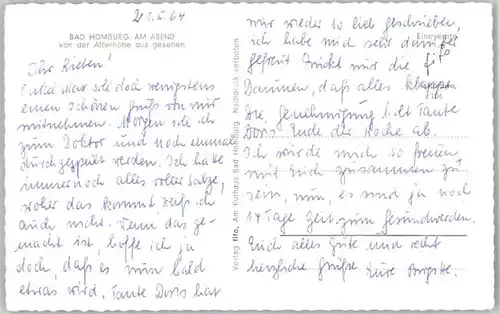 21.5.64
BAD HOMBURG AM ABEND
von der Ellerhöhe aus gesehen
Ihr Lieben!
soll doch wenigstens
einen schönen Gruß von mir
mitnehmen. Morgen soll ich
zum Doktor und noch einmal
durchgespült werden. Ich hatte
immer noch alles voller Salze,
woher das kommt weiß ich
auch nicht. Wenn das ge-
macht ist, hoffe ich ja
doch, daß es nun bald
etwas wird. Tante Doris hat
Verlag fifo, Am Kurhaus Bad Homburg Nachdruck verboten
mir wieder so lieb geschrieben,
ich habe mich sehr darüber
gefreut. Drückt mir die
Daumen, daß alles klappt.
Die Genehmigung holt Tante
Doris Ende der Woche ab.
Ich würde mich so freuen
mit Euch zusammen zu
sein, nun, es sind ja noch
14 Tage Zeit zum Gesundwerden.
Euch alles Gute und recht
herzliche Grüße Eure Brigitte.
fifo